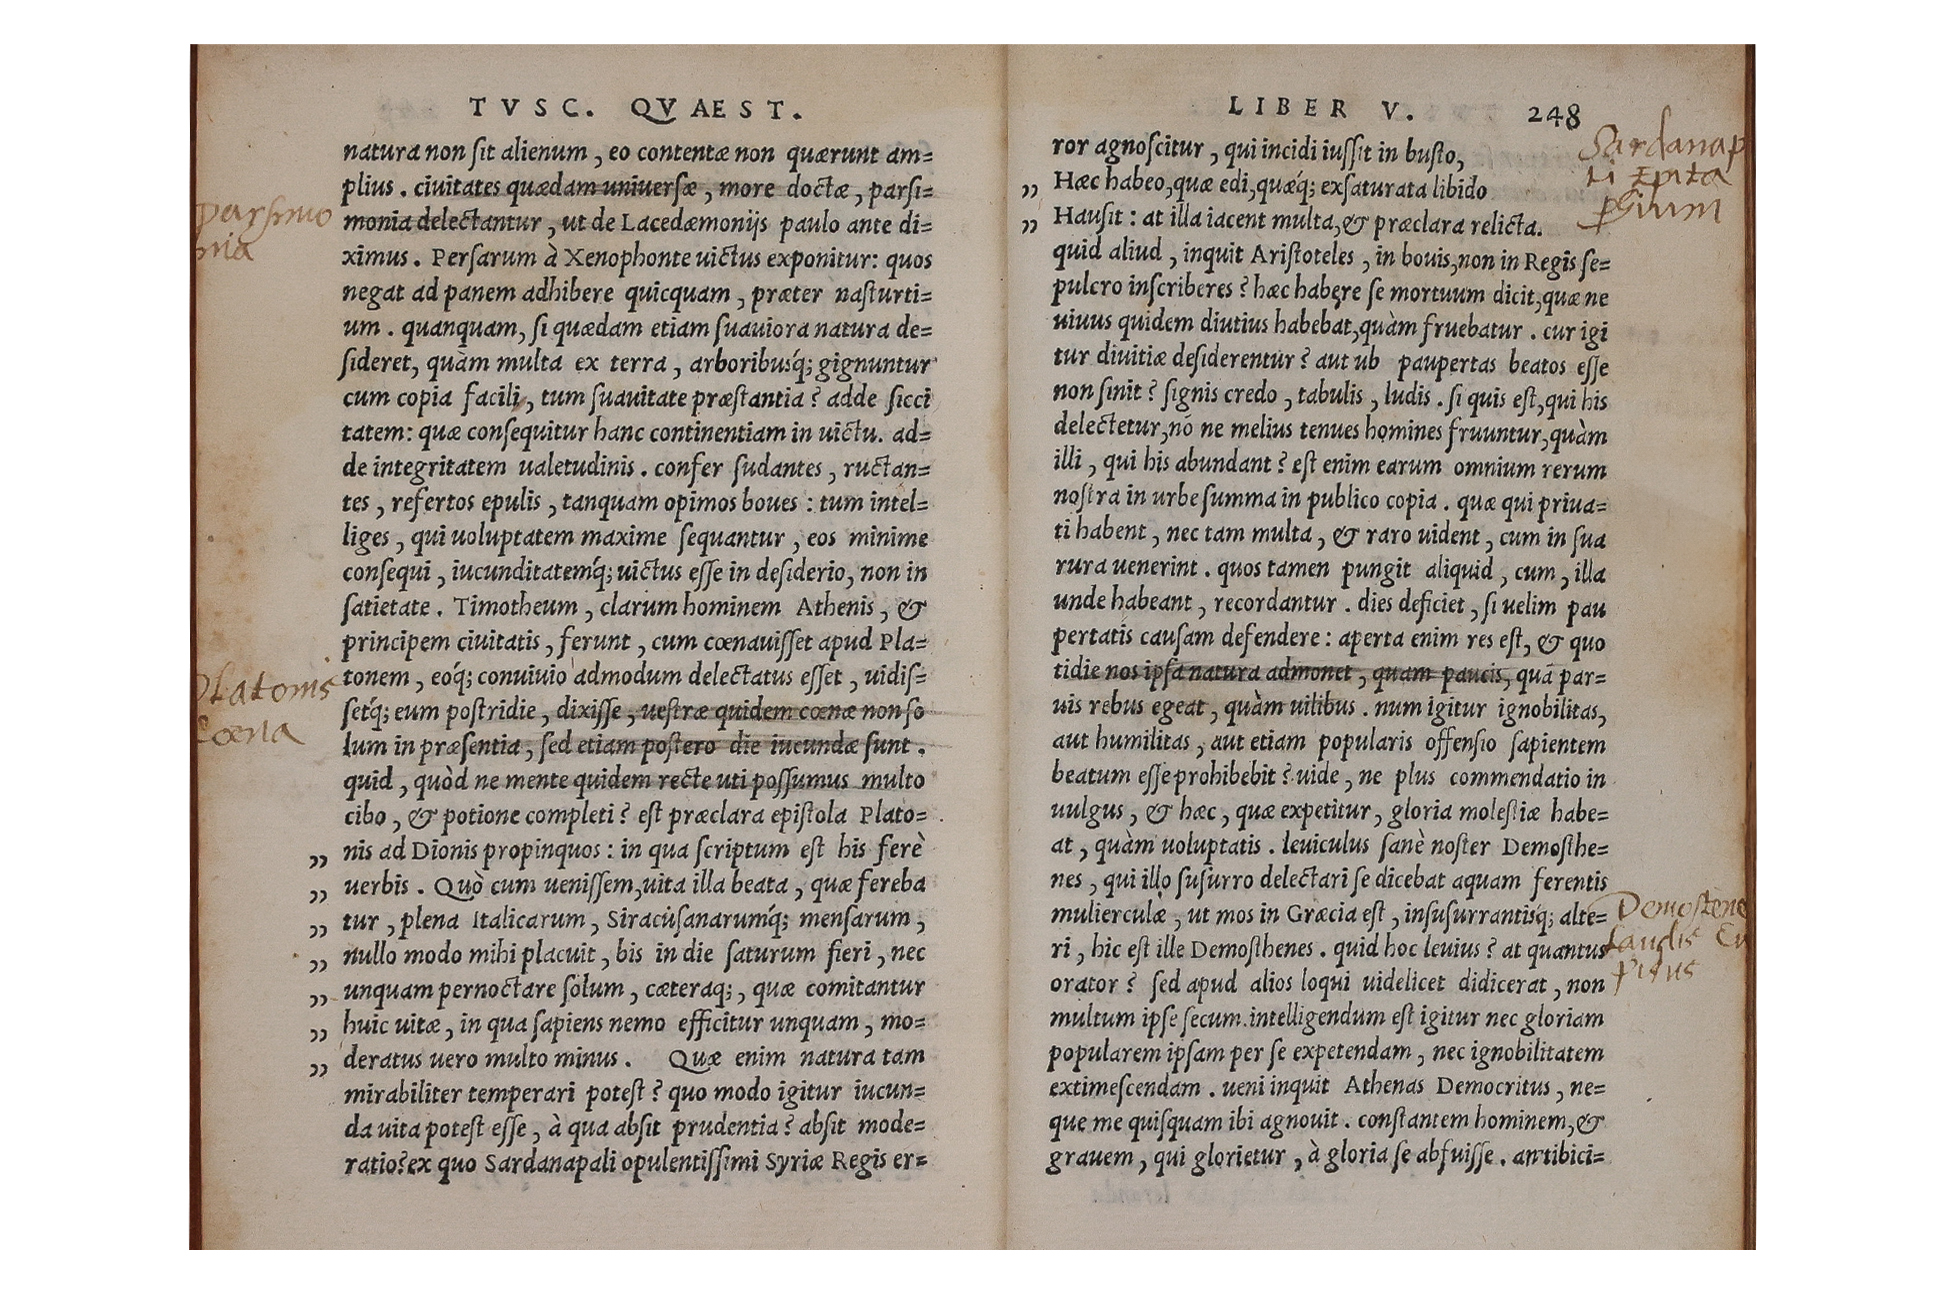 TVSC. QVAEST.
natura non ſit alienum, eo contentæ non quærunt am=
plius. ciuitates quædam uniuerſæ, more doctæ, parſi=
monia delectantur, ut de Lacedæmonijs paulo ante di=
ximus. Perſarum à Xenophonte uictus exponitur: quos
negat ad panem adhibere quicquam, præter naſturti=
um. quanquam, ſi quædam etiam ſuauiora natura de=
ſideret, quàm multa ex terra, arboribusq́; gignuntur
cum copia facili, tum ſuauitate præſtantia? adde ſicci
tatem: quæ conſequitur hanc continentiam in uictu. ad=
de integritatem ualetudinis. confer ſudantes, ructan=
tes, refertos epulis, tanquam opimos boues: tum intel=
liges, qui uoluptatem maxime ſequantur, eos minime
conſequi, iucunditatemq́; uictus eſſe in deſiderio, non in
ſatietate. Timotheum, clarum hominem Athenis, &
principem ciuitatis, ferunt, cum cœnauiſſet apud Pla=
tonem, eoq́; conuiuio admodum delectatus eſſet, uidiſ=
ſetq́; eum poſtridie, dixiſſe, ueſtræ quidem cœnæ non ſo
lum in præſentia, ſed etiam poſtero die iucundæ ſunt.
quid, quòd ne mente quidem recte uti poſſumus multo
cibo, & potione completi? eſt præclara epiſtola Plato=
„ nis ad Dionis propinquos: in qua ſcriptum eſt his ferè
„ uerbis. Quò cum ueniſſem, uita illa beata, quæ fereba
„ tur, plena Italicarum, Siracuſanarumq́; menſarum,
„ nullo modo mihi placuit, bis in die ſaturum fieri, nec
„ unquam pernoctare ſolum, cæteraq;, quæ comitantur
„ huic uitæ, in qua ſapiens nemo efficitur unquam, mo=
„ deratus uero multo minus. Quæ enim natura tam
mirabiliter temperari poteſt? quo modo igitur iucun=
da uita poteſt eſſe, à qua abſit prudentia? abſit mode=
ratio? ex quo Sardanapali opulentiſſimi Syriæ Regis er=
parſimo
nia
Platonis
Cœna
LIBER V. 248
ror agnoſcitur, qui incidi iuſſit in buſto,
„ Hæc habeo, quæ edi, quæq́; exſaturata libido
„ Hauſit: at illa iacent multa, & præclara relicta.
quid aliud, inquit Ariſtoteles, in bouis, non in Regis ſe=
pulcro inſcriberes? hæc habere ſe mortuum dicit, quæ ne
uiuus quidem diutius habebat, quàm fruebatur. cur igi
tur diuitiæ deſiderentur? aut ub paupertas beatos eſſe
non ſinit? ſignis credo, tabulis, ludis. ſi quis eſt, qui his
delectetur, nó ne melius tenues homines fruuntur, quàm
illi, qui his abundant? eſt enim earum omnium rerum
noſtra in urbe ſumma in publico copia. quæ qui priua=
ti habent, nec tam multa, & raro uident, cum in ſua
rura uenerint. quos tamen pungit aliquid, cum, illa
unde habeant, recordantur. dies deficiet, ſi uelim pau
pertatis cauſam defendere: aperta enim res eſt, & quo
tidie nos ipſa natura admonet, quam paucis, quā par=
uis rebus egeat, quàm uilibus. num igitur ignobilitas,
aut humilitas, aut etiam popularis offenſio ſapientem
beatum eſſe prohibebit? uide, ne plus commendatio in
uulgus, & hæc, quæ expetitur, gloria moleſtiæ habe=
at, quàm uoluptatis. leuiculus ſanè noſter Demoſthe=
nes, qui illo ſuſurro delectari ſe dicebat aquam ferentis
mulierculæ, ut mos in Græcia eſt, inſuſurrantisq́; alte=
ri, hic eſt ille Demoſthenes. quid hoc leuius? at quantus
orator? ſed apud alios loqui uidelicet didicerat, non
multum ipſe ſecum. intelligendum eſt igitur nec gloriam
popularem ipſam per ſe expetendam, nec ignobilitatem
extimeſcendam. ueni inquit Athenas Democritus, ne=
que me quiſquam ibi agnouit. conſtantem hominem, &
grauem, qui glorietur, à gloria ſe abfuiſſe. an tibici=
Sardanap
li Epita
phium
Demoſtene
laudis Cu
pidus